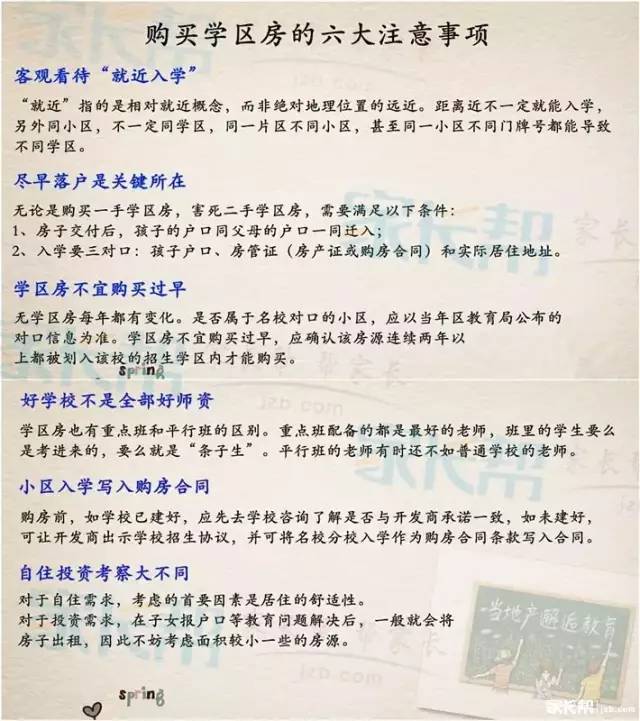 购买学区房的六大注意事项
客观看待“就近入学”
“就近”指的是相对就近概念，而非绝对地理位置的远近。距离近不一定就能入学，
另外同小区，不一定同学区，同一片区不同小区，甚至同一小区不同门牌号都能导致
不同学区。
尽早落户是关键所在
无论是购买一手学区房，害死二手学区房，需要满足以下条件：
1、房子交付后，孩子的户口同父母的户口一同迁入；
2、入学要三对口：孩子户口、房管证（房产证或购房合同）和实际居住地址。
学区房不宜购买过早
无学区房每年都有变化。是否属于名校对口的小区，应以当年区教育局公布的
对口信息为准。学区房不宜购买过早，应确认该房源连续两年以
上都被划入该校的招生学区内才能购买。
spring
好学校不是全部好师资
学区房也有重点班和平行班的区别。重点班配备的都是最好的老师，班里的学生要么
是考进来的，要么就是“条子生”。平行班的老师有时还不如普通学校的老师。
小区入学写入购房合同
购房前，如学校已建好，应先去学校咨询了解是否与开发商承诺一致，如未建好，
可让开发商出示学校招生协议，并可将名校分校入学作为购房合同条款写入合同。
自住投资考察大不同
对于自住需求，考虑的首要因素是居住的舒适性。
对于投资需求，在子女报户口等教育问题解决后，一般就会将
房子出租，因此不妨考虑面积较小一些的房源。
当地产邂逅教育
spring
家长帮 jzb.com